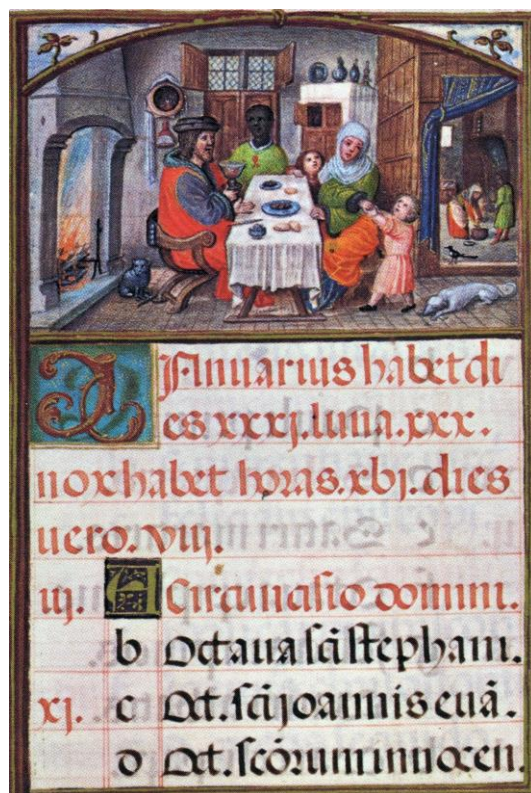 Januarius habet di
es xxxj. luna. xxx.
nox habet horas. xbj. dies
uero. viij.
iij. A Circuncisio domini.
b Octaua scī stephani.
xj. c Oct. scī joannis euā.
d Oct. scōrum innocen.